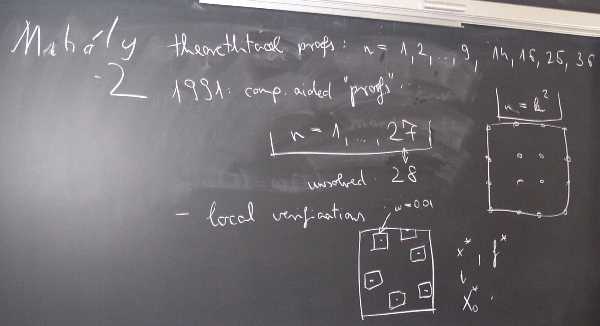 Mihály
-2
theorethtical profs: n = 1, 2, ..., 9, 14, 16, 25, 36
1991: comp. aided "proofs"
n = 1, ..., 27
unsolved 28
n = k²
- local verifications
w=0.01
x*, f*
↓
X₀*